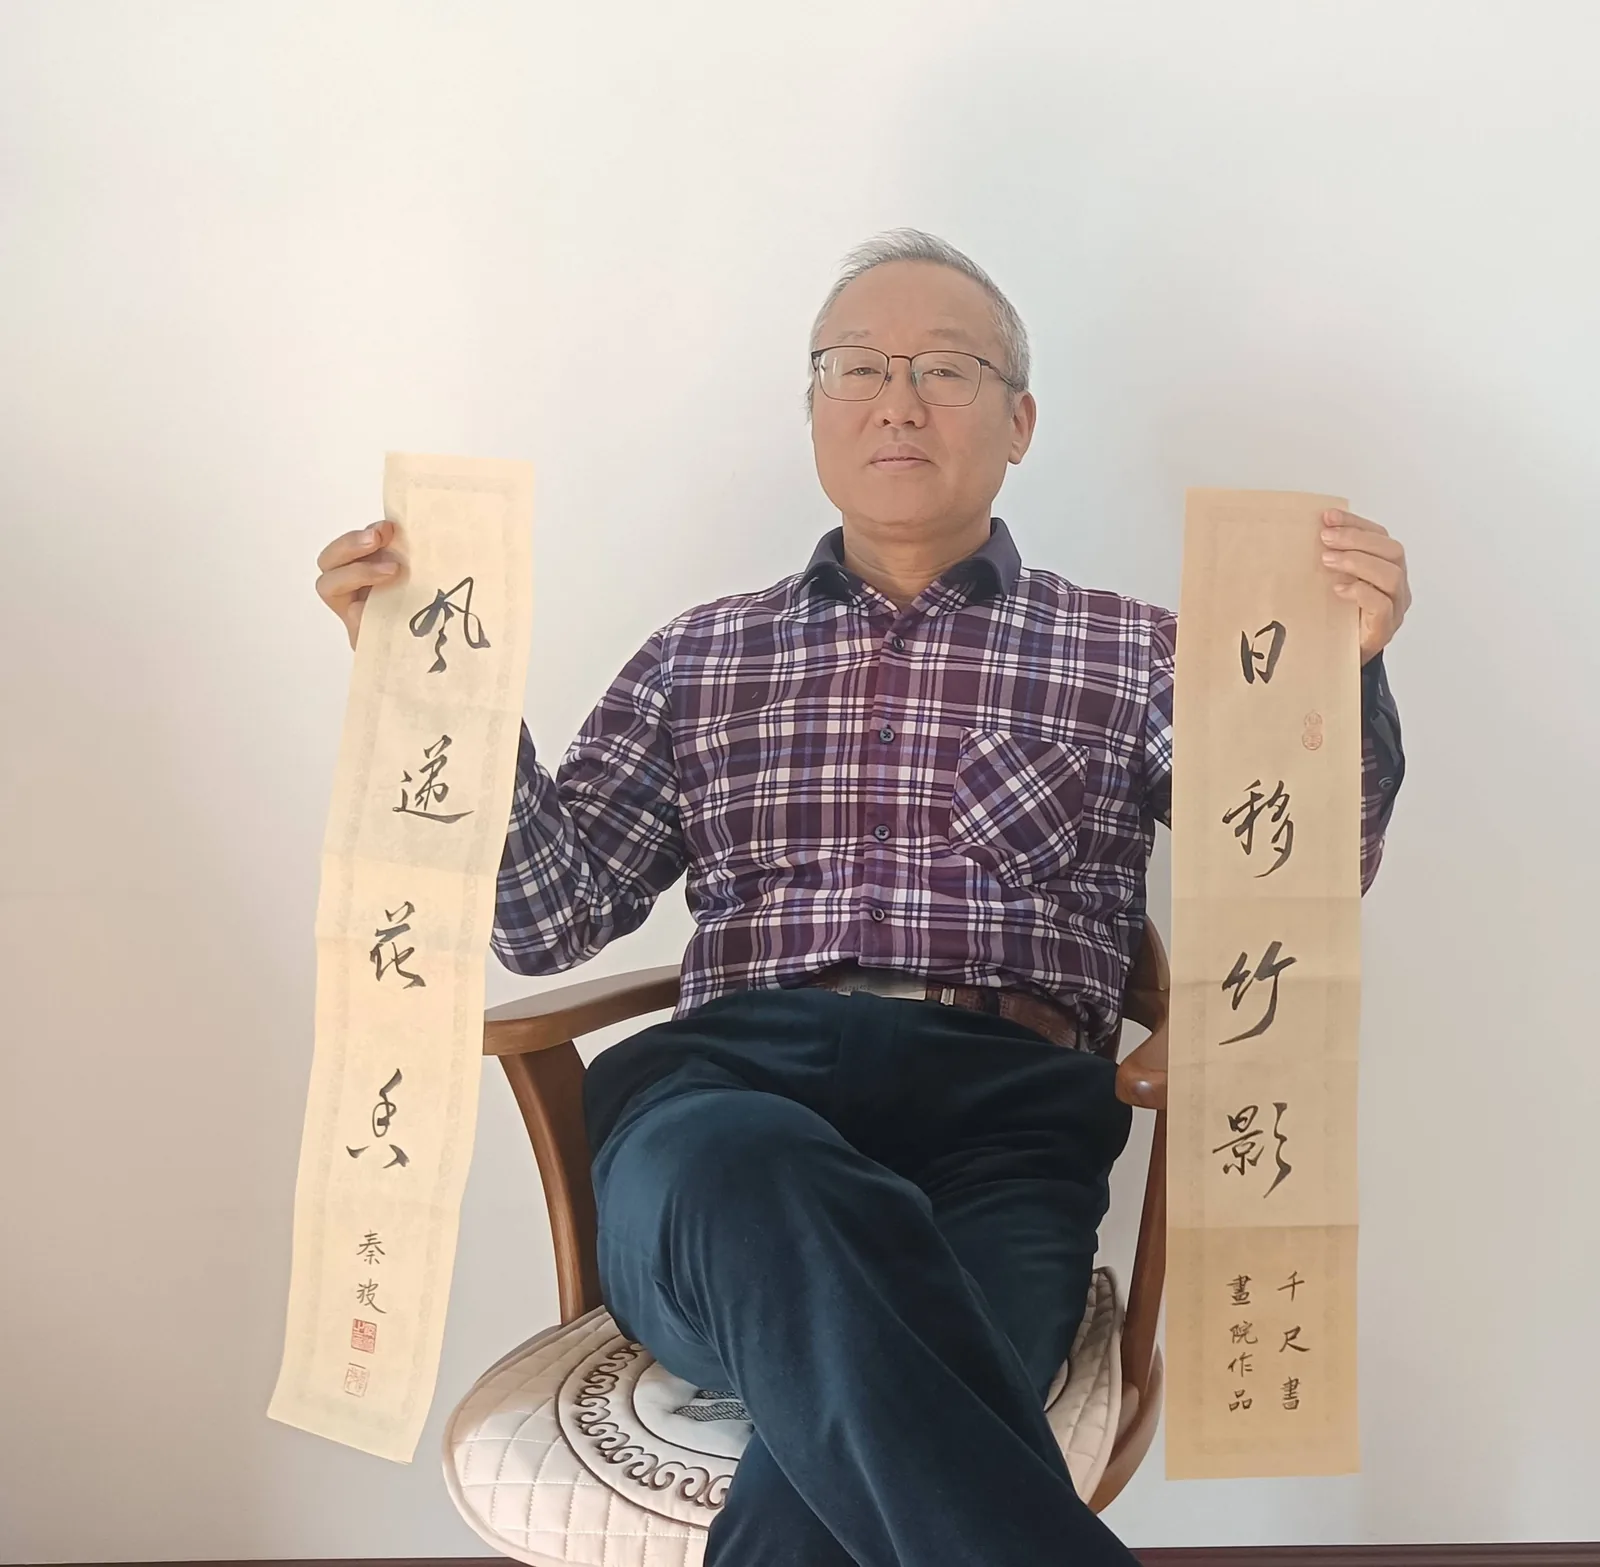 日移竹影
千尺書
畫院作品
風递花香
秦波